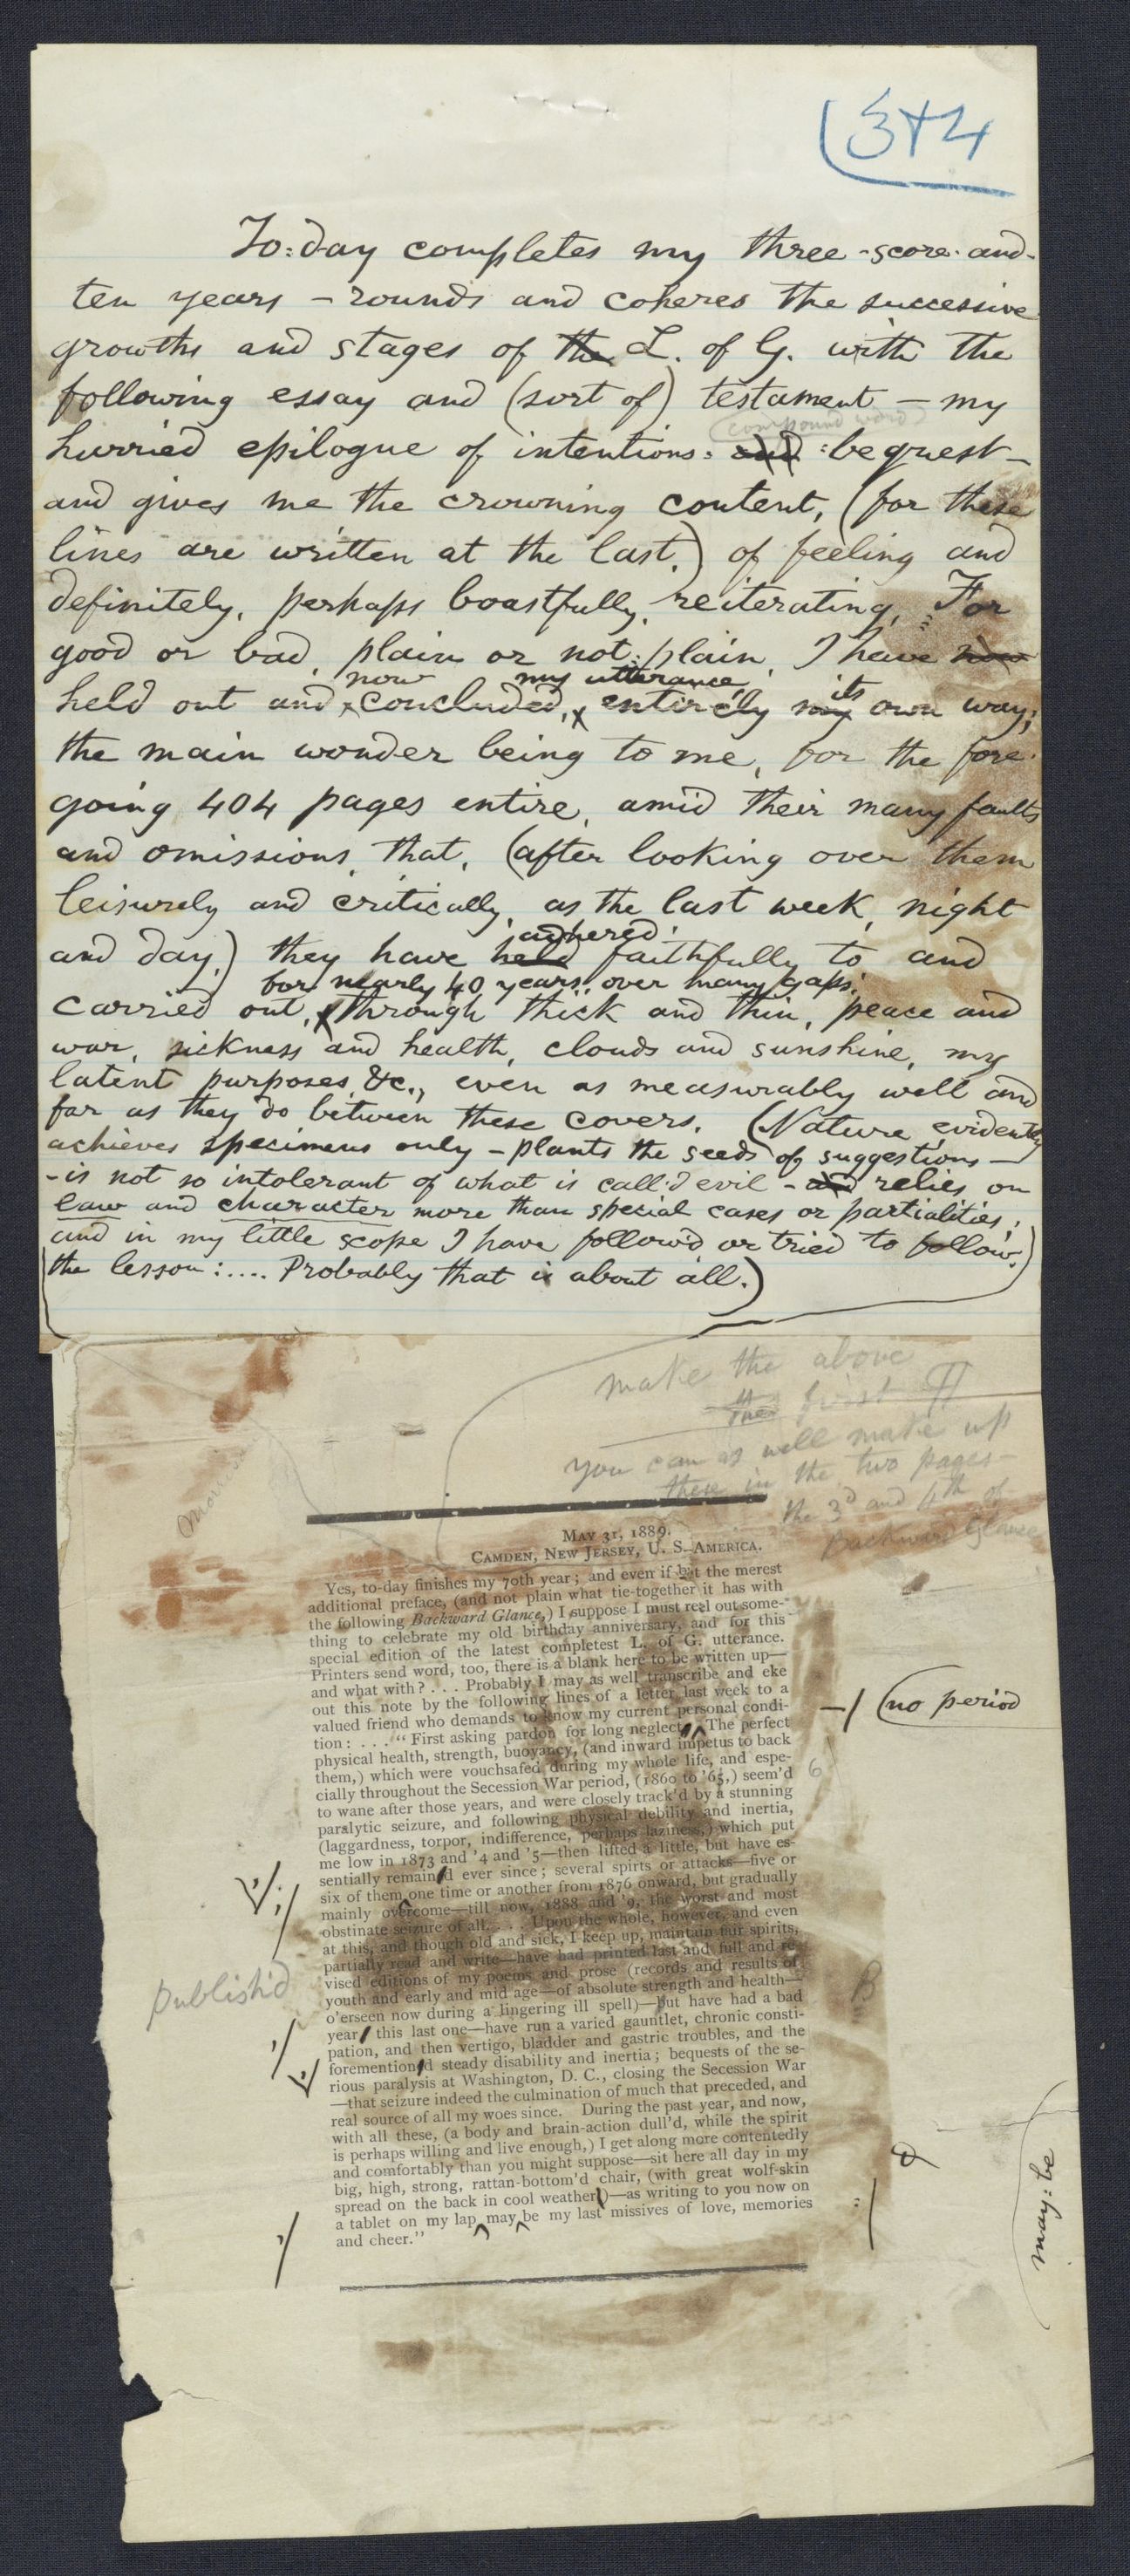 3+4
To=day completes my three-score-and-
ten years — rounds and coheres the successive
growths and stages of the L. of G. with the
following essay and (sort of) testament — my
(compound word)
hurried epilogue of intentions= and =bequest —
and gives me the crowning content, (for these
lines are written at the last,) of feeling and
definitely, perhaps boastfully, reiterating, For
good or bad, plain or not=plain, I have now
now my utterance its
held out and concluded, entirely my own way;
the main wonder being to me, for the fore-
going 404 pages entire, amid their many faults
and omissions, that, (after looking over them
leisurely and critically, as the last week, night
adhered
and day,) they have held faithfully to and
for nearly 40 years, over many gaps,
carried out, through thick and thin, peace and
war, sickness and health, clouds and sunshine, my
latent purposes, &c., even as measurably well and
far as they do between these covers. (Nature evidently
achieves specimens only — plants the seeds of suggestions —
— is not so intolerant of what is call'd evil — and relies on
law and character more than special cases or partialities;
and in my little scope I have follow'd or tried to follow
the lesson: .... Probably that is about all.)
make the above
the first ¶
you can as well make up
there in the two pages —
the 3d and 4th of
Backward Glance
MAY 31, 1889.
CAMDEN, NEW JERSEY, U. S. AMERICA.
Yes, to-day finishes my 70th year; and even if but the merest
additional preface, (and not plain what tie-together it has with
the following Backward Glance,) I suppose I must reel out some-
thing to celebrate my old birthday anniversary, and for this
special edition of the latest completest L. of G. utterance.
Printers send word, too, there is a blank here to be written up—
and what with? . . . Probably I may as well transcribe and eke
out this note by the following lines of a letter last week to a
valued friend who demands to know my current personal condi-
tion: . . . "First asking pardon for long neglect, The perfect
—/ (no period
physical health, strength, buoyancy, (and inward impetus to back
them,) which were vouchsafed during my whole life, and espe-
cially throughout the Secession War period, (1860 to '65,) seem'd
6
to wane after those years, and were closely track'd by a stunning
paralytic seizure, and following physical debility and inertia,
(laggardness, torpor, indifference, perhaps laziness,) which put
me low in 1873 and '4 and '5—then lifted a little, but have es-
sentially remain'd ever since; several spirts or attacks—five or
six of them one time or another from 1876 onward, but gradually
mainly overcome—till now, 1888 and '9, the worst and most
obstinate seizure of all. . . . Upon the whole, however, and even
at this, and though old and sick, I keep up, maintain fair spirits,
partially read and write—have had printed last and full and re-
publish'd
vised editions of my poems and prose (records and results of
youth and early and mid age—of absolute strength and health—
o'erseen now during a lingering ill spell)—but have had a bad
year, this last one—have run a varied gauntlet, chronic consti-
pation, and then vertigo, bladder and gastric troubles, and the
foremention'd steady disability and inertia; bequests of the se-
rious paralysis at Washington, D. C., closing the Secession War
—that seizure indeed the culmination of much that preceded, and
real source of all my woes since. During the past year, and now,
with all these, (a body and brain-action dull'd, while the spirit
is perhaps willing and live enough,) I get along more contentedly
and comfortably than you might suppose—sit here all day in my
big, high, strong, rattan-bottom'd chair, (with great wolf-skin
spread on the back in cool weather)—as writing to you now on
a tablet on my lap may be my last missives of love, memories
and cheer."
may=be